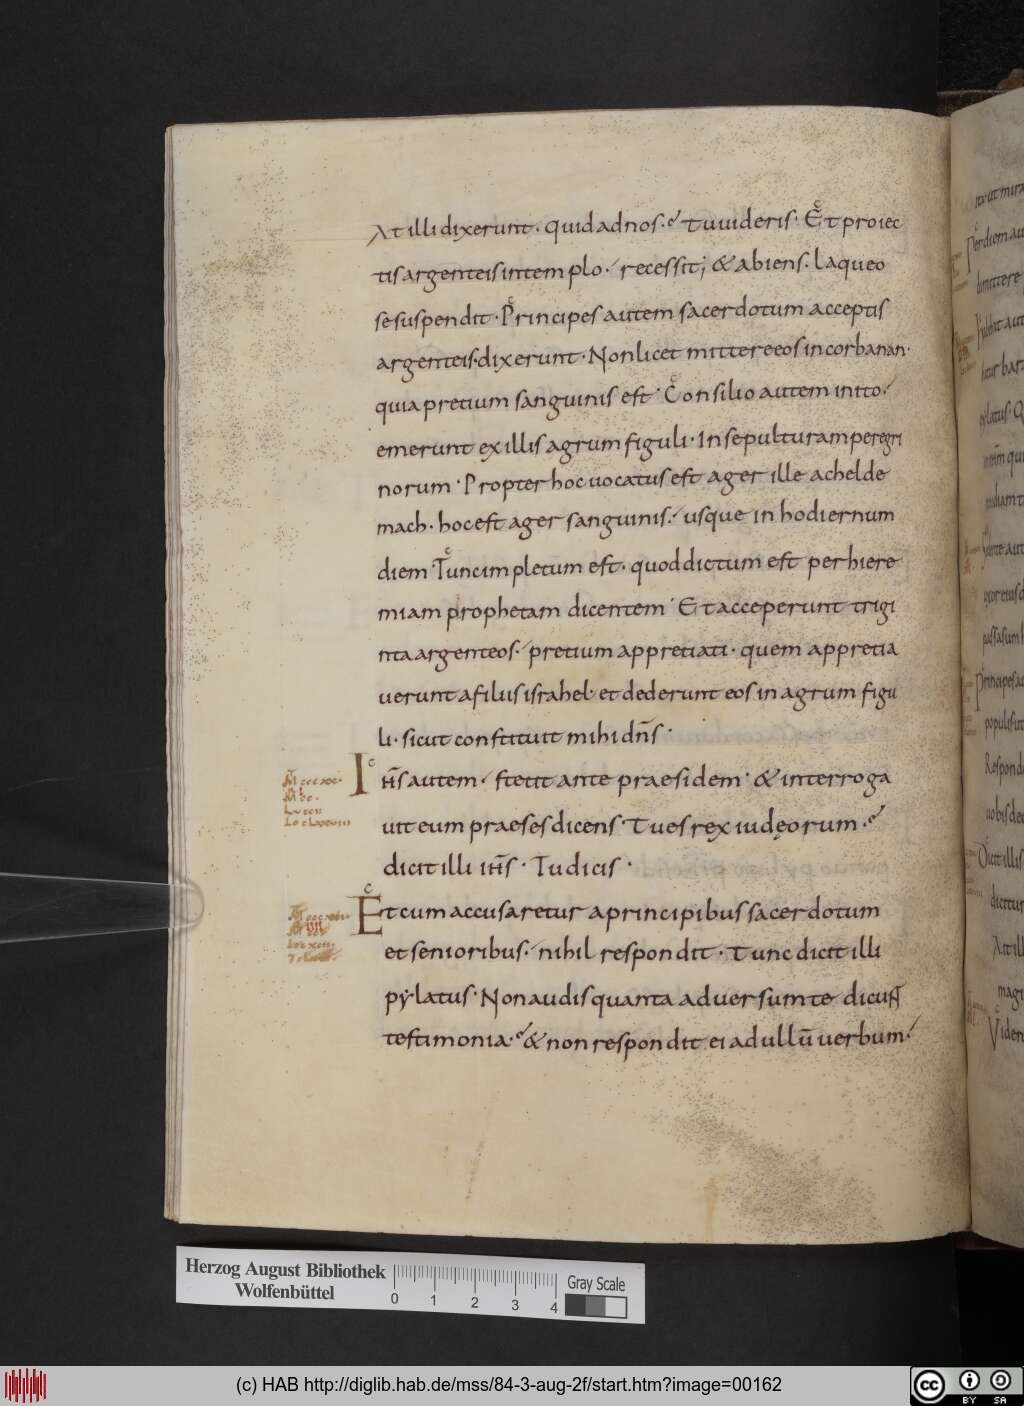 At illi dixerunt. quid ad nos. tu uideris. Et proiec
tis argenteis in templo. recessit; & abiens. laqueo
se suspendit. Principes autem sacerdotum acceptis
argenteis. dixerunt. Non licet mittere eos in corbanan.
quia pretium sanguinis est. Consilio autem inito.
emerunt ex illis agrum figuli. In sepulturam peregri
norum. Propter hoc uocatus est ager ille achelde
mach. hoc est ager sanguinis. usque in hodiernum
diem. Tunc impletum est. quod dictum est per hiere
miam prophetam dicentem. Et acceperunt trigi
nta argenteos. pretium appretiati. quem appretia
uerunt a filiis israhel. et dederunt eos in agrum figu
li. sicut constituit mihi dn̄s.
Ih̄s autem. stetit ante praesidem. & interroga
uit eum praeses dicens. Tu es rex iudęorum.
dicit illi ih̄s. Tu dicis.
Et cum accusaretur a principibus sacerdotum
et senioribus. nihil respondit. Tunc dicit illi
pẏlatus. Non audis quanta aduersum te dicunt
testimonia. & non respondit ei ad ullū uerbum.
Herzog August Bibliothek
Wolfenbüttel
0 1 2 3 4
Gray Scale
(c) HAB http://diglib.hab.de/mss/84-3-aug-2f/start.htm?image=00162
cc BY SA